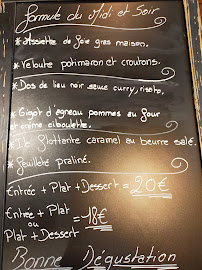 formule du Midi et Soir
* Assiette de foie gras maison.
* Velouté potimaron et croutons.
* Dos de lieu noir sauce curry, risoto,
* Gigot d'agneau pommes au four crème ciboulette.
* Ile flottante caramel au beurre salé.
* feuilleté praliné.
Entrée + Plat + Dessert = 20€
Entrée + Plat
ou = 18€
Plat + Dessert
Bonne Dégustation